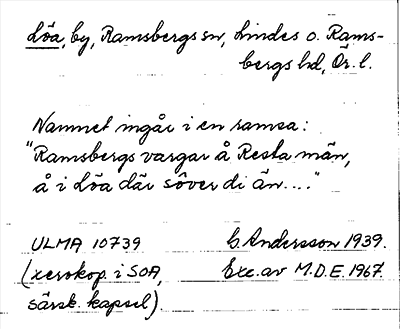 Löa, by, Ramsbergs sn, Lindes o. Rams-
bergs hd, Ör. l.
Namnet ingår i en ramsa:
"Ramsbergs vargar å Resta män,
å i Löa där söver di än...."
ULMA 10739 C. Andersson 1939.
(xerokop. i SOA, Exc. av M.D.E. 1967.
särsk. kapsel)